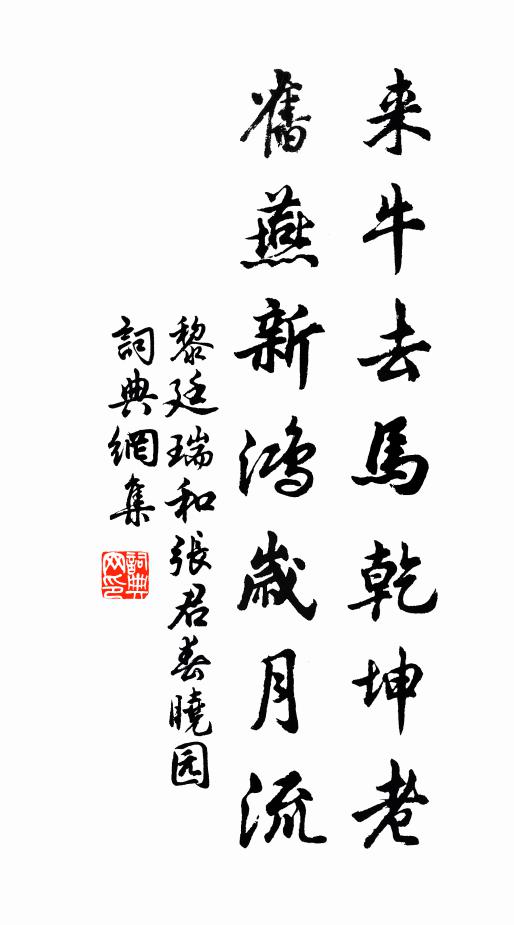 来牛去馬乾坤老
舊燕新鴻歲月流
黎廷瑞和張君春曉园
詞典網集
詞典網印